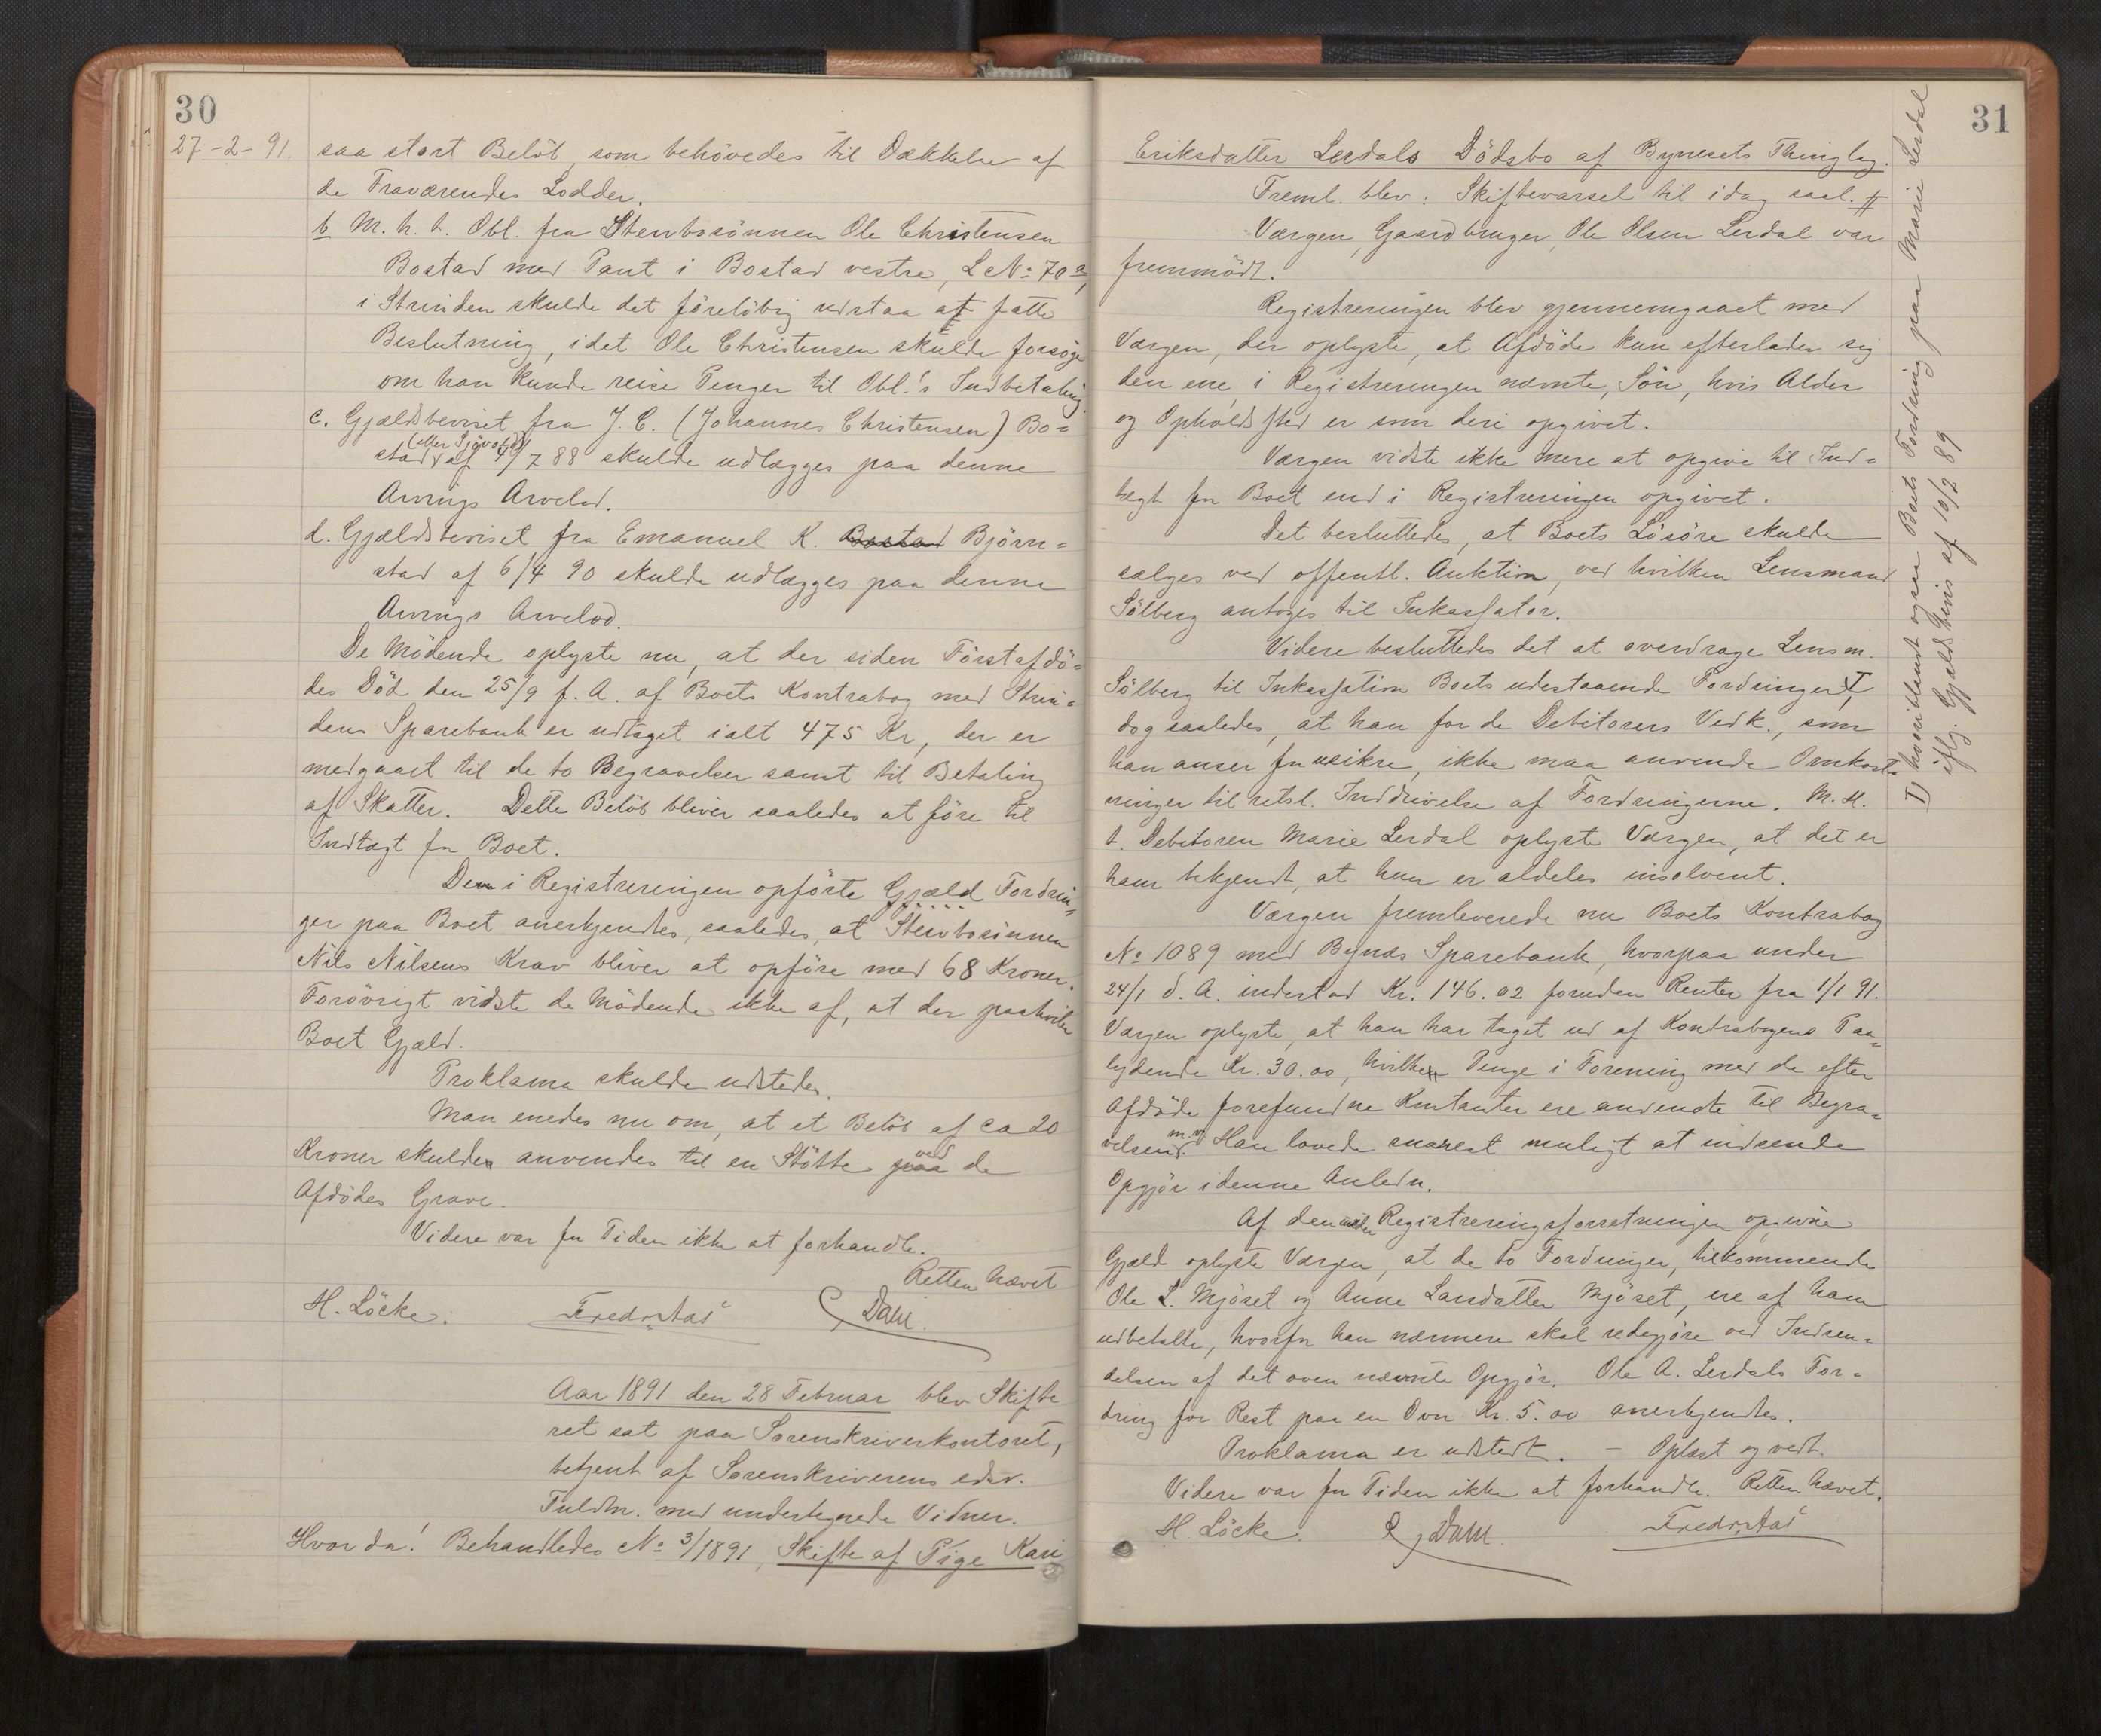 30
27-2-91.
saa stort Belöb, som behövedes til Dækkelse af
de Fraværendes Lodder.
b M. h. t. Obl. fra Stervbosönnen Ole Christensen
Bostad med Pant i Bostad vestre, L № 70 a,
i Strinden skulde det foreløbig udstaa at fatte
Beslutning, idet Ole Christensen skulde forsöge
om han kunde reise Penger til Obl.'s Indbetaling.
c. Gjældsbeviset fra J. C. (Johannes Christensen) Bo=
(eller Sjövold)
stad af 4/7 88 skulde udlægges paa denne
Arvings Arvelod.
d. Gjældsbeviset fra Emanuel K. Bostad Björn=
stad af 6/4 90 skulde udlægges paa denne
Arvings Arvelod.
De Mödende oplyste nu, at der siden Förstafdö=
des Död den 25/9 f. A. af Boets Kontrabog med Strin=
dens Sparebank er udtaget ialt 475 Kr, der er
medgaaet til de to Begravelser samt til Betaling
af Skatter. Dette Belöb bliver saaledes at före til
Indtægt for Boet.
Den i Registreringen opförte Gjæld Fordrin=
ger paa Boet anerkjendtes, saaledes, at Stervbosönnen
Nils Nilsens Krav bliver at opföre med 68 Kroner.
Forövrigt vidste de Mödende ikke af, at der paahviler
Boet Gjæld.
Proklama skulde udstedes.
Man enedes nu om, at et Belöb af ca 20
Kroner skulde anvendes til en Stötte paa ved de
Afdödes Grave.
Videre var for Tiden ikke at forhandle.
Retten hævet
H. Löcke. Fredrstad Dahl.
Aar 1891 den 28 Februar blev Skifte
ret sat paa Sorenskriverkontoret,
betjent af Sorenskriverens edsv.
Fuldm. med undertegnede Vidner.
Hvor da! Behandledes № 3/1891, Skifte af Pige Kari
31
Eriksdatter Lerdals Dödsbo af Bynesets Thinglag.
Freml. blev: Skiftevarsel til idag saal. #
Værgen, Gaardbruger Ole Olsen Lerdal var
fremmödt.
Registreringen blev gjennemgaaet med
Værgen, der oplyste, at Afdöde kun efterlader sig
den ene, i Registreringen nævnte, Sön, hvis Alder
og Opholdssted er som deri opgivet.
Værgen vidste ikke mere at opgive til Ind=
tægt for Boet end i Registreringen opgivet.
Det besluttedes, at Boets Lösöre skulde
sælges ved offentl. Auktion, ved hvilken Lensmand
Sölberg antoges til Inkassator.
Videre besluttedes det at overdrage Lensm.
Sölberg til Inkassation Boets udestaaende Fordringer I),
dog saaledes, at han for de Debitorers Vedk., som
han anser for usikre, ikke maa anvende Omkost=
ninger til retsl. Inddrivelse af Fordringerne. M. H.
t. Debitoren Marie Lerdal oplyste Værgen, at det er
ham bekjendt, at hun er aldeles insolvent.
Værgen fremleverede nu Boets Kontrabog
№ 1089 med Bynæs Sparebank, hvorpaa under
24/1 d. A. indestod Kr. 146.02 foruden Renter fra 1/1 91.
Værgen oplyste, at han har taget ud af Kontrabogens Paa=
lydende Kr. 30.00, hvilke Penge i Forening med de efter
Afdöde forefundne Kontanter ere anvendte til Begra=
velsen m.v. Han lovede snarest muligt at indsende
Opgjör i denne Anledn.
Af den under Registreringsforretningen opgivne
Gjæld oplyste Værgen, at de to Fordringer, tilkommende
Ole L. Mjöset og Anne Larsdatter Mjöset, ere af ham
udbetalte, hvorfor han nærmere skal redegjöre ved Indsen=
delsen af det oven nævnte Opgjör. Ole A. Lerdals For=
dring for Rest paa en Ovn Kr. 5.00 anerkjendtes.
Proklama er udstedt. – Oplæst og vedt.
Videre var for Tiden ikke at forhandle. Retten hævet.
H. Löcke Dahl. Fredrstad
I) hvoriblandt ogsaa Boets Fordring paa Marie Lerdal
iflg. Gjældsbevis af 10/2 89